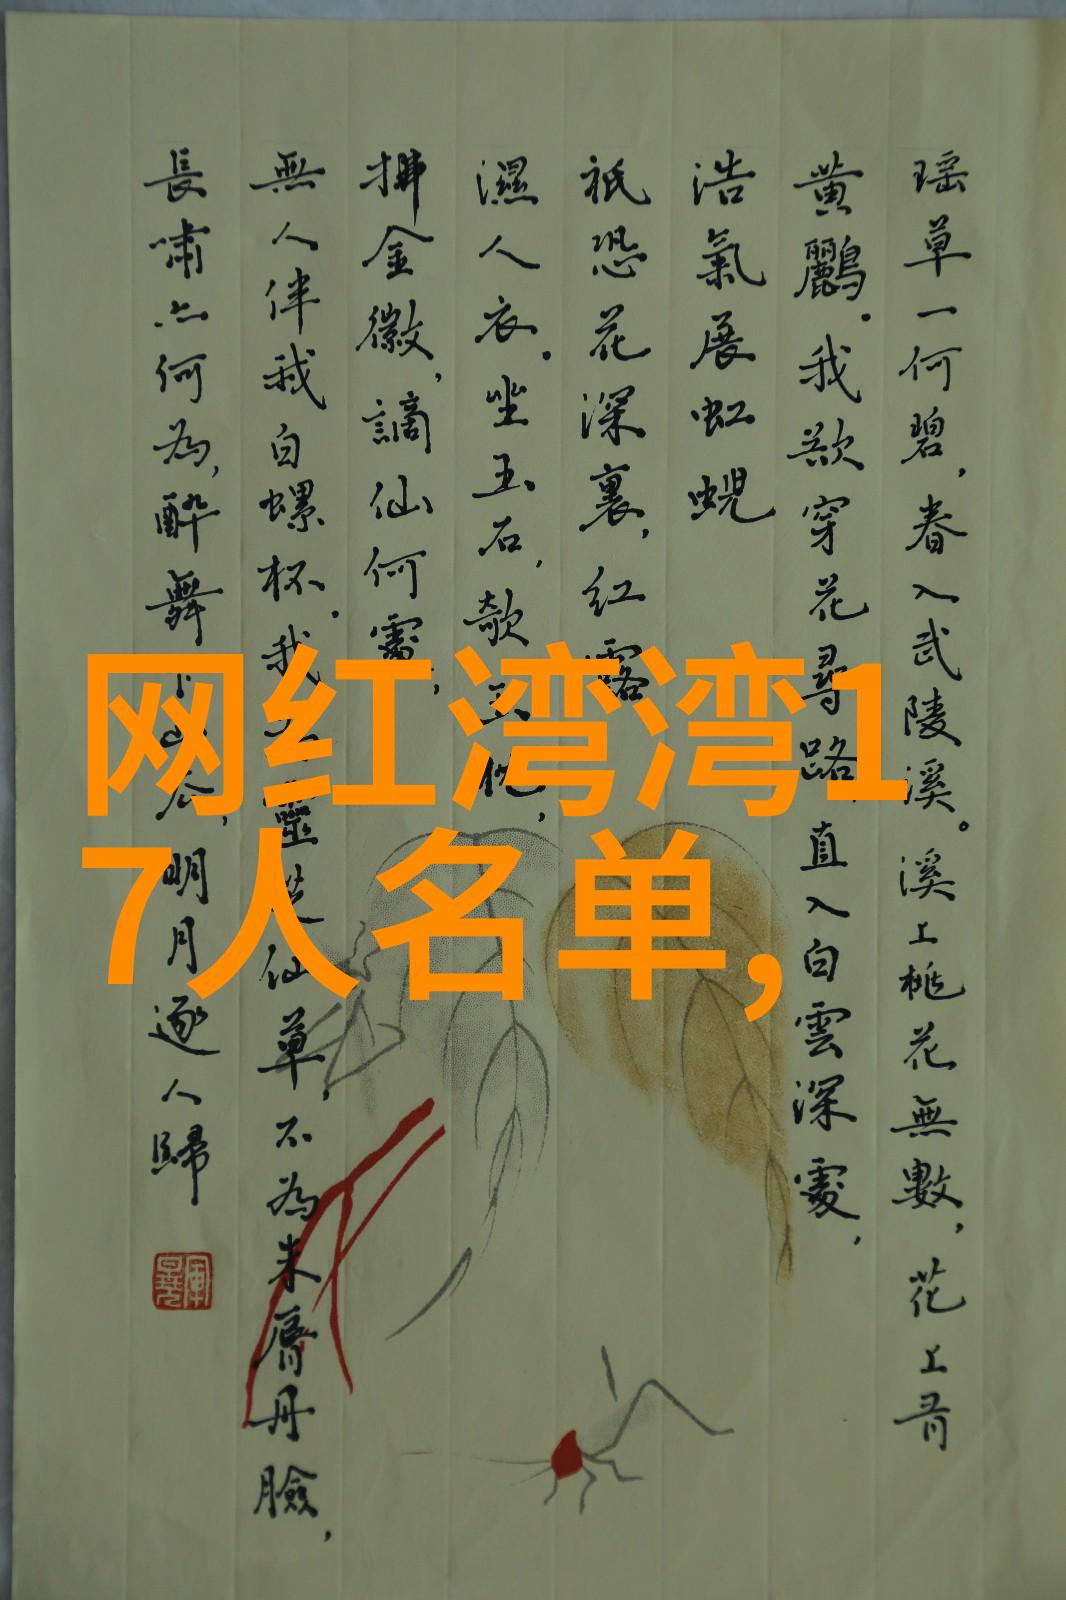 瑶草一何碧，春入武陵溪。溪上桃花無數，花上有
黄鸝。我欲穿花尋路直入白雲深處，
浩氣展虹蜺
祇恐花深裏，紅露
濕人衣。坐玉石，欹玉枕，
拂金徽，謫仙何處，
無人伴我白螺杯。我為靈芝仙草，不為朱脣丹臉，
長嘯亦何為，醉舞下山去，明月逐人歸
网红湾湾1
7人名单,